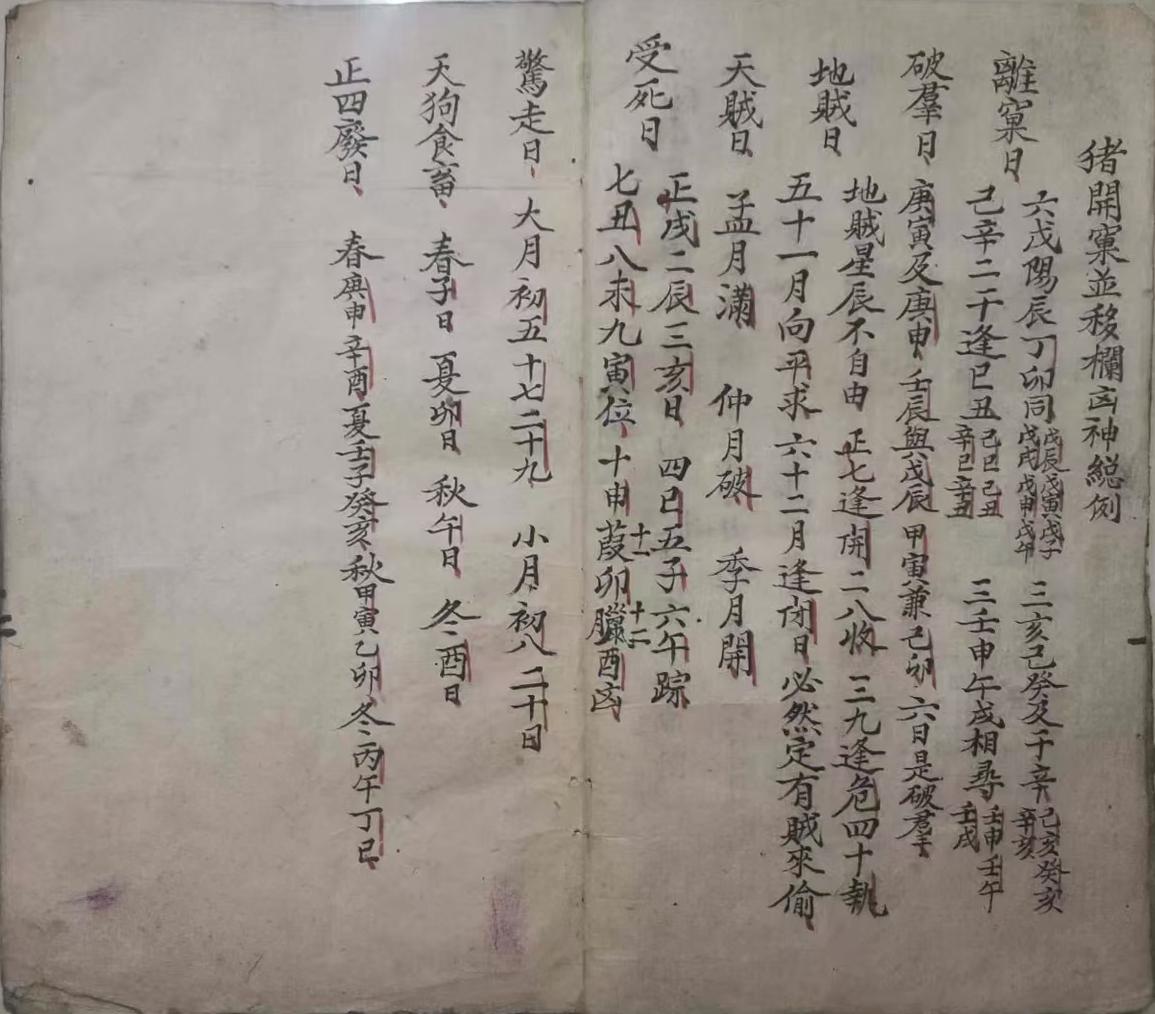 猪開窠並移欄凶神総例
離窠日
六戊陽辰丁卯同 戊辰戊寅戊子 戊戌戊申戊午 三亥己癸及于辛 己亥癸亥 辛亥
己辛二干逢巳丑 己巳己丑 辛巳辛丑 三壬申午戌相尋 壬申壬午 壬戌
破羣日 庚寅及庚申 壬辰與戊辰 甲寅兼己卯 六日是破羣
地賊日
地賊星辰不自由 正七逢開二八收 三九逢危四十執
五十一月向平求 六十二月逢閉日 必然定有賊來偷
天賊日 孟月滿 仲月破 季月開
受死日
正戌二辰三亥日 四巳五子六午踪
七丑八未九寅位 十申葭十一卯臘十二酉凶
驚走日 大月初五十七二十九 小月初八二十日
天狗食畜 春子日 夏卯日 秋午日 冬酉日
正四廢日 春庚申辛酉夏壬子癸亥秋甲寅乙卯冬丙午丁巳